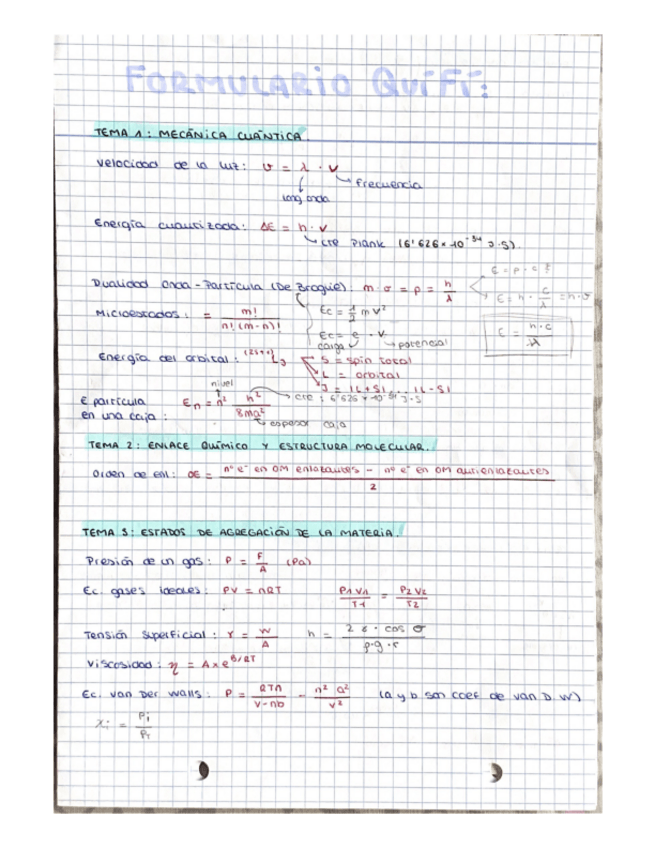 FORMULARIO QUÍFÍ:
TEMA 1: MECÁNICA CUÁNTICA.
Velocidad de la luz: v = λ · ν
long. onda
Frecuencia
Energía cuantizada: ΔE = h · ν
cte Plank (6'626 x 10^-34 J·s).
Dualidad Onda-Partícula (De Broglie): m · v = p = h/λ
E = p · c
E = h · c/λ = h·ν
E = h·c/λ
Microestados: = m!/n!(m-n)!
Ec = 1/2 m v²
Ec = e · V
carga
potencial
Energía del orbital: (2S+1)L_J
S = spin total
L = orbital
J = |L+S|...|L-S|
E partícula en una caja: En = n² h²/8ma²
nivel
cte: 6'626 x 10^-34 J·s
espesor caja
TEMA 2: ENLACE QUÍMICO Y ESTRUCTURA MOLECULAR.
Orden de enl: OE = nº e⁻ en OM enlazantes - nº e⁻ en OM antienlazantes / 2
TEMA 3: ESTADOS DE AGREGACIÓN DE LA MATERIA.
Presión de un gas: P = F/A (Pa)
Ec. gases ideales: PV = nRT P1V1/T1 = P2V2/T2
Tensión superficial: γ = W/A h = 2γ · cos σ/ρ·g·r
Viscosidad: η = A x e^B/RT
Ec. Van Der Walls: P = RTn/V-nb - n² a²/V² (a y b son coef. de Van D. W)
χi = Pi/PT